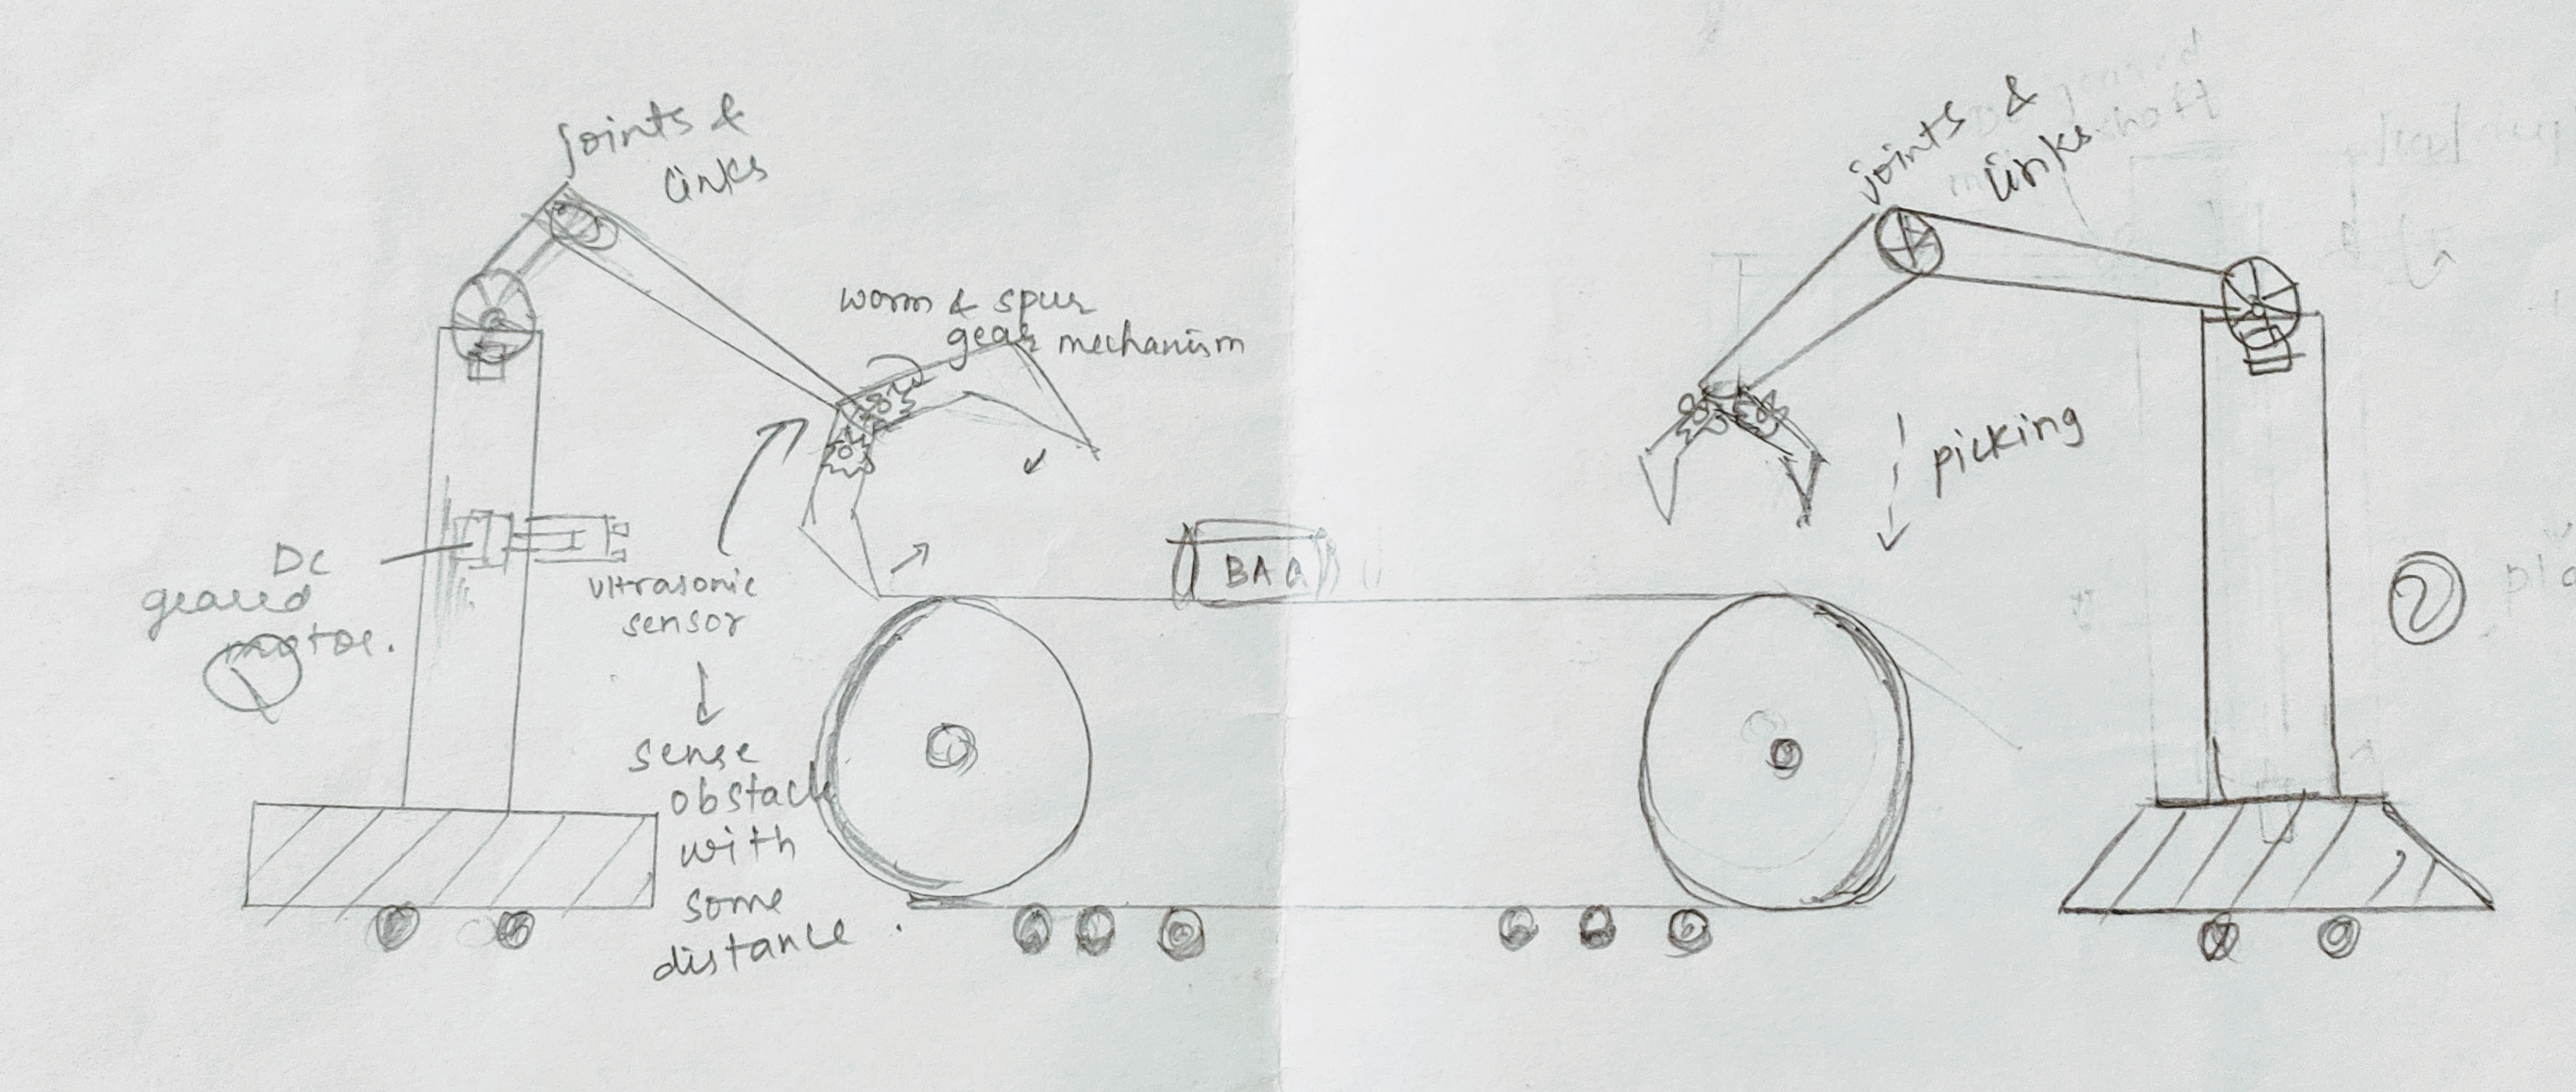 joints &
links
worm & spur
gear mechanism
DC
geared
motor.
1
ultrasonic
sensor
sense
obstacle
with
some
distance.
BAG
joints &
links
picking
2